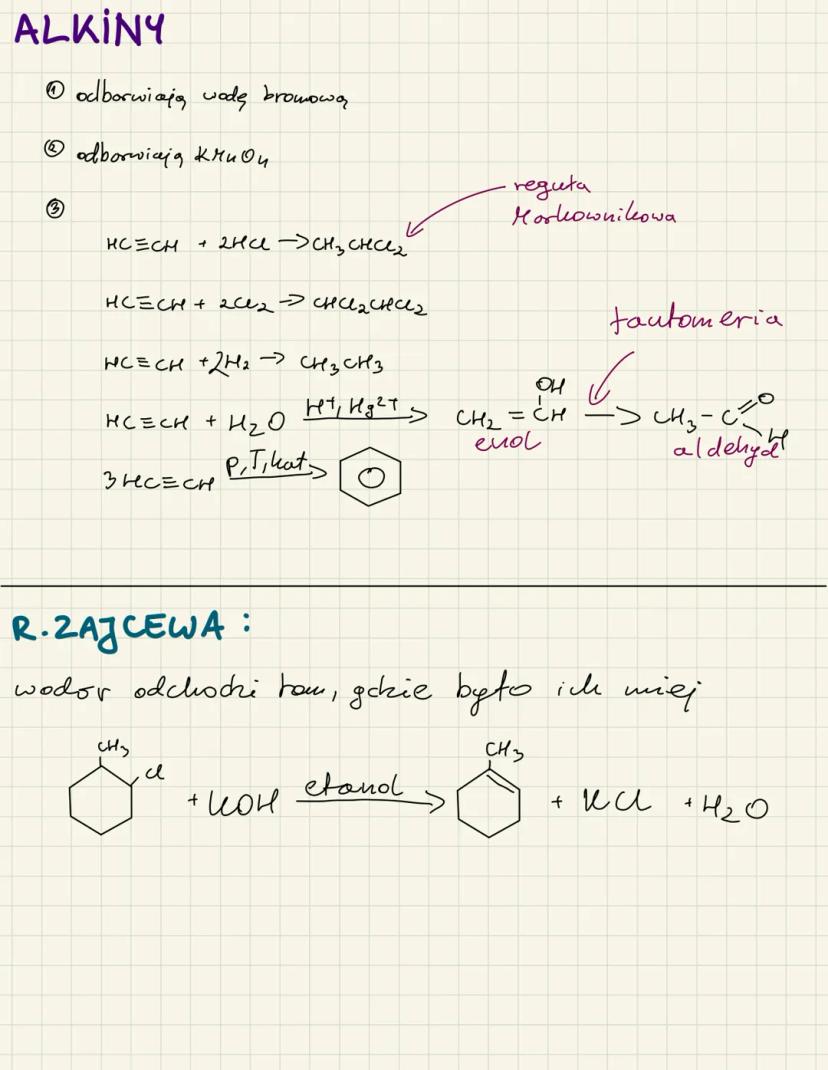 ALKINY
① odbarwiają wodę bromową
② odbarwiają KMnO4
③
reguła
Markownikowa
HC≡CH + 2HCl → CH3CHCl2
HC≡CH + 2Cl2 → CHCl2CHCl2
tautomeria
HC≡CH + 2H2 → CH3CH3
HC≡CH + H2O H+, Hg2+ → CH2 = CH OH → CH3 - C O H
enol aldehyd
3HC≡CH p,T,kat →
R. ZAJCEWA :
wodór odchodzi tam, gdzie było ich mniej
CH3 Cl + KOH etanol → CH3 + KCl + H2O